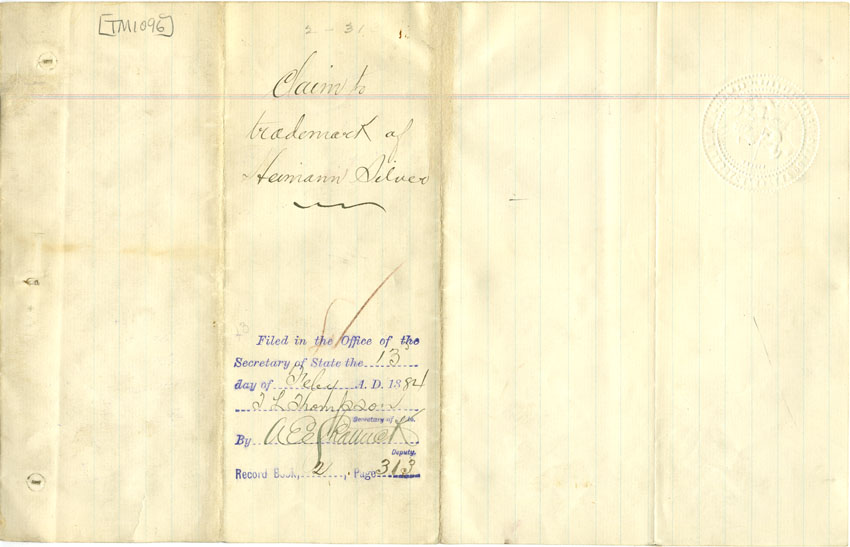 [TM1096]
2 - 31
Claim to
trademark of
Heimann Silver
Filed in the Office of the
Secretary of State the 13
day of Feby A. D. 1884
T L Thompson
Secretary of State.
By A E
Deputy.
Record Book, 2, Page 313